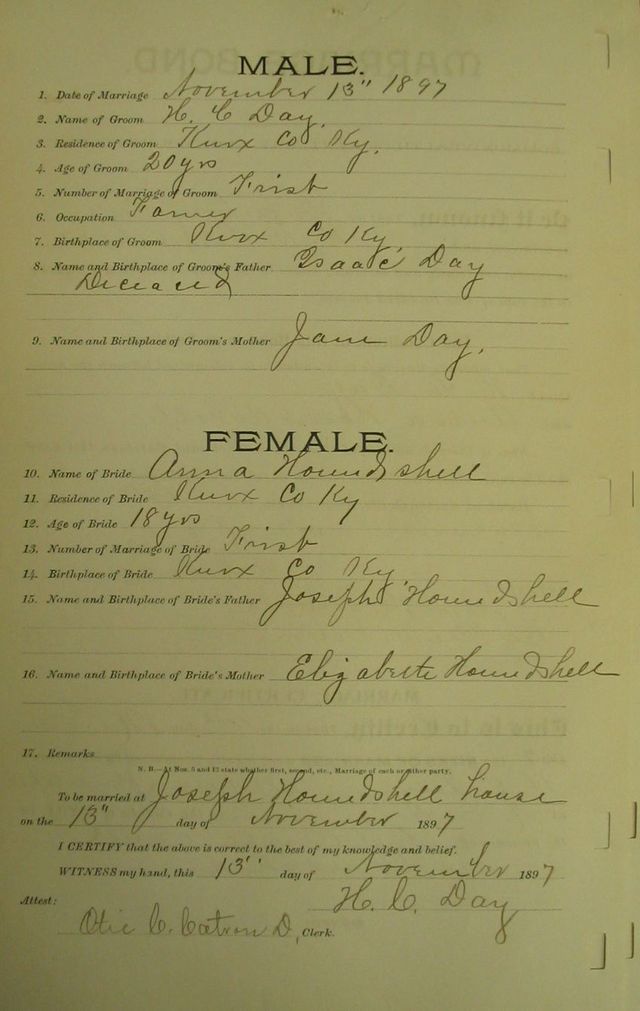 MALE.
1. Date of Marriage November 13" 1897
2. Name of Groom H. C Day.
3. Residence of Groom Knox Co Ky.
4. Age of Groom 20 yrs
5. Number of Marriage of Groom First
6. Occupation Farmer
7. Birthplace of Groom Knox Co Ky
8. Name and Birthplace of Groom's Father Isaac Day
Diceased
9. Name and Birthplace of Groom's Mother Jane Day.
FEMALE.
10. Name of Bride Anna Houndshell
11. Residence of Bride Knox Co Ky
12. Age of Bride 18 yrs
13. Number of Marriage of Bride First
14. Birthplace of Bride Knox Co Ky
15. Name and Birthplace of Bride's Father Joseph Houndshell
16. Name and Birthplace of Bride's Mother Elizabette Houndshell
17. Remarks
N. B.—At Nos. 5 and 13 state whether first, second, etc., Marriage of each or either party.
To be married at Joseph Houndshell house
on the 13" day of November 1897
I CERTIFY that the above is correct to the best of my knowledge and belief.
WITNESS my hand, this 13" day of November 1897
H. C. Day
Attest:
C. Catron D, Clerk.